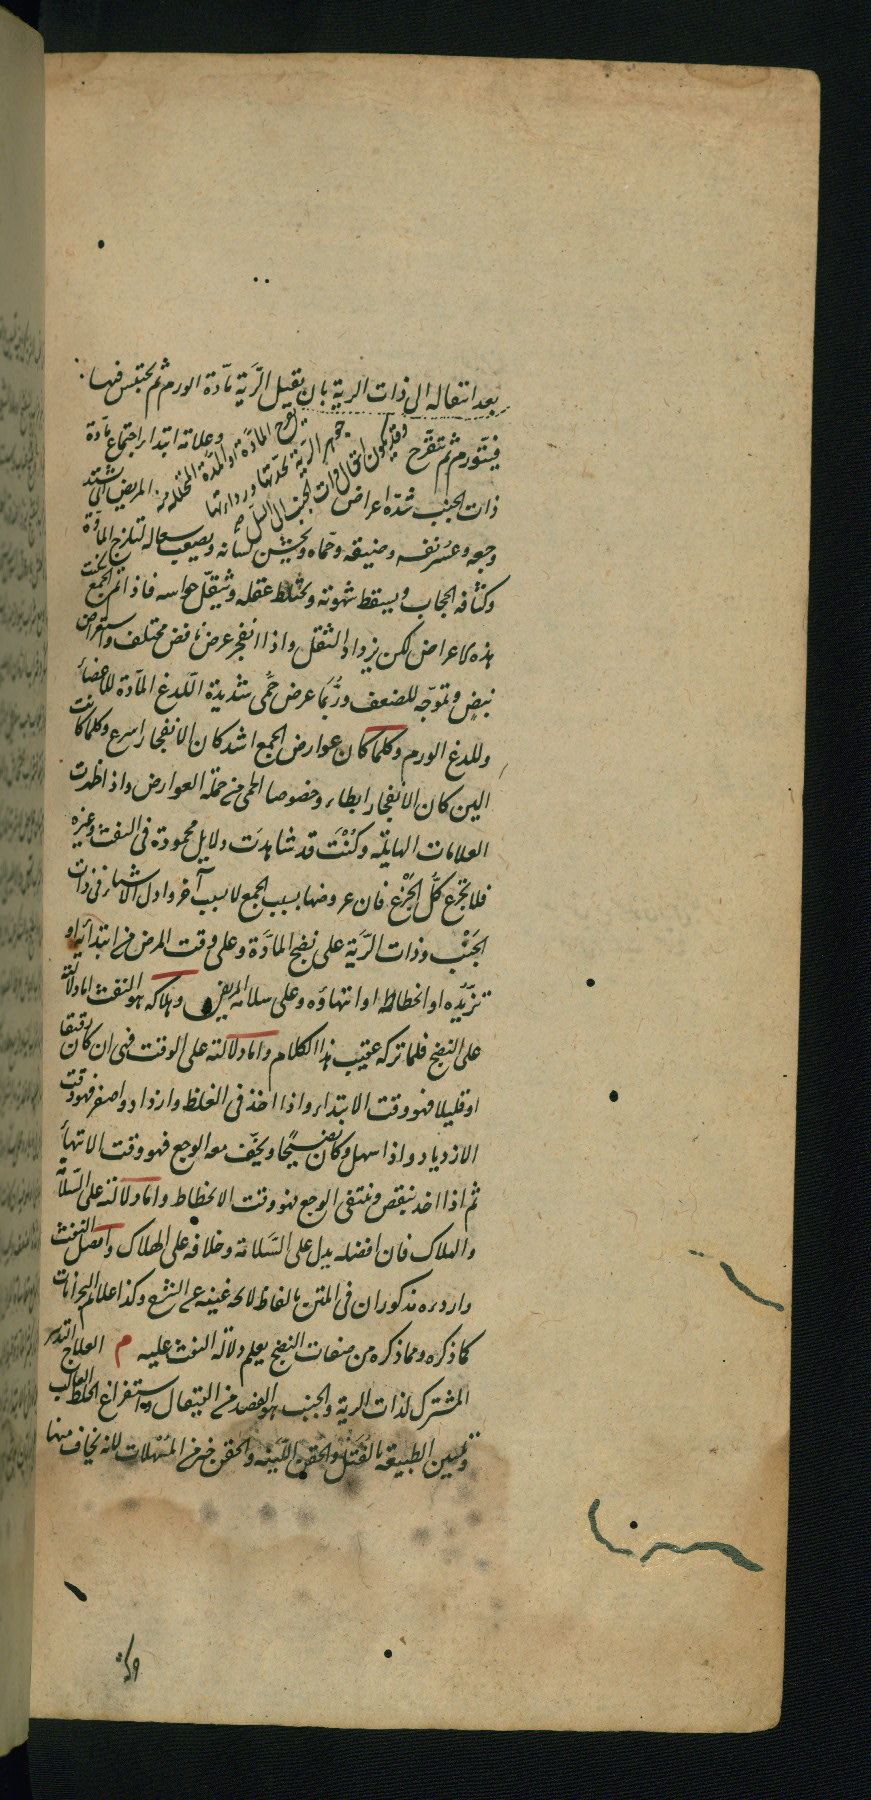 بعد انتقاله الى ذات الرية بان تقبل الرَّية مادة الورم ثم تحتبس فيها
فيتورم ثم تتقرح وقد يكون انتقال ذات الجنب الى السل وعلامة ابتداء اجتماع مادة
جوهر الرية لحدتها ورداءتها
ذات الجنب شدة اعراض المريض التى تشتد
وجعه وعسر نفسه وضيقه وحماه وتخشن لسانه ويصعب سعاله لتلزج المادة
وكثافة الحجاب ويسقط شهوته ويختلط عقله وتثقل حواسه فاذا تم الجمع خفت
هذه الاعراض لكن يزداد الثقل واذا انفجر عرض نافض مختلف واستعراض
نبض وتموّجه للضعف وربما عرض حمى شديدة للدغ المادة للاعضاء
وللدغ الورم وكلما كان عوارض الجمع اشد كان الانفجار اسرع وكلما كانت
الين كان الانفجار ابطاء وخصوصا الحمى من جملة العوارض واذا ظهرت
العلامات الهايلة وكُنْتَ قد شاهدت دلايل محمودة فى النفث وغيره
فلا تجزع كل الجزع فان عروضها بسبب الجمع لا بسبب آخر وادل الاشياء فى ذات
الجنب وذات الرية على نضج المادة وعلى وقت المرض من ابتدائه او
تزيّده او انحطاطه او انتهاؤه وعلى سلامة المريض وهلاكه هو النفث اما دلالته
على النضج فلما تركه عقيب هذا الكلام واما دلالته على الوقت فهى ان كان رقيقا
او قليلا فهو وقت الابتداء واذا اخذ فى الغلظ وازداد واصفر فهو وقت
الازدياد واذا سهل وكان نضيجا ويخف معه الوجع فهو وقت الانتهاء
ثم اذا اخذ ينقص وينتفى الوجع فهو وقت الانحطاط واما دلالته على السلامة
والهلاك فان افضله يدل على السَّلامة وخلافه على الهلاك وافضل النفث
واردءه مذكوران فى المتن بالفاظ غنية عن الشرح وكذا علامة البحرانات
كما ذكره ومما ذكره من صفات النضج يعلم دلالة النفث عليه م العلاج التدبير
المشترك لذات الرية والجنب هو الفصد من القيفال واستفراغ الخلط الغالب
وتليين الطبيعة بالفتل والحقن اللينة والحقن خير من المسهلات لانه يخاف منها